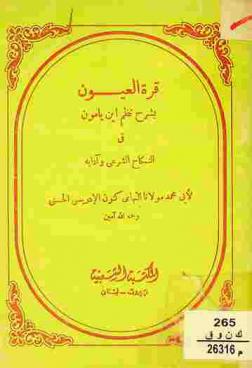 قرة العيون
بشرح نظم ابن يامون
فى
النكاح الشرعى وآدابه
لأبى محمد مولانا التهامى كنون الإدريسى الحسنى
رحمه الله آمين
المكتبة الشعبية
بيروت - لبنان
265
ك ن و ق
26316 م